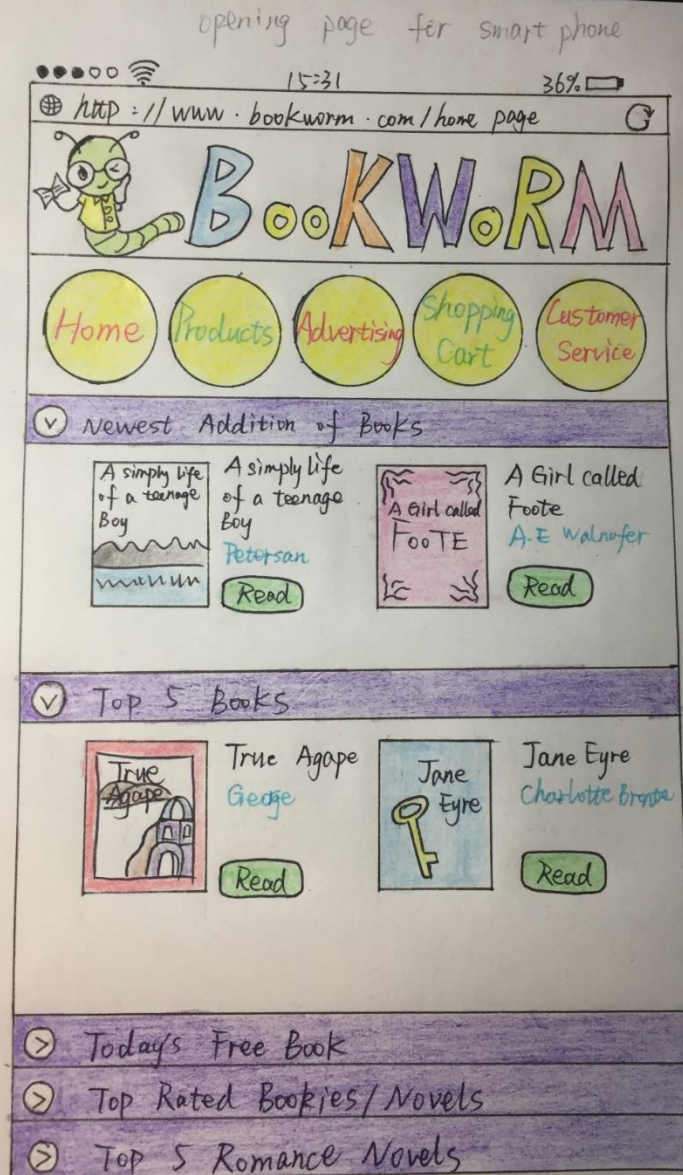 opening page for smart phone
15:31 36%
http://www.bookworm.com/home page
BOOKWORM
Home Products Advertising Shopping Cart Customer Service
Newest Addition of Books
A simply life
of a teenage
Boy
A simply life
of a teenage
Boy
Petersan
Read
A Girl called
FOOTE
A Girl called
Foote
A.E Walnofer
Read
Top 5 Books
True
Agape
True Agape
Geoge
Read
Jane
Eyre
Jane Eyre
Charlotte Bronte
Read
Today's Free Book
Top Rated Bookies/Novels
Top 5 Romance Novels